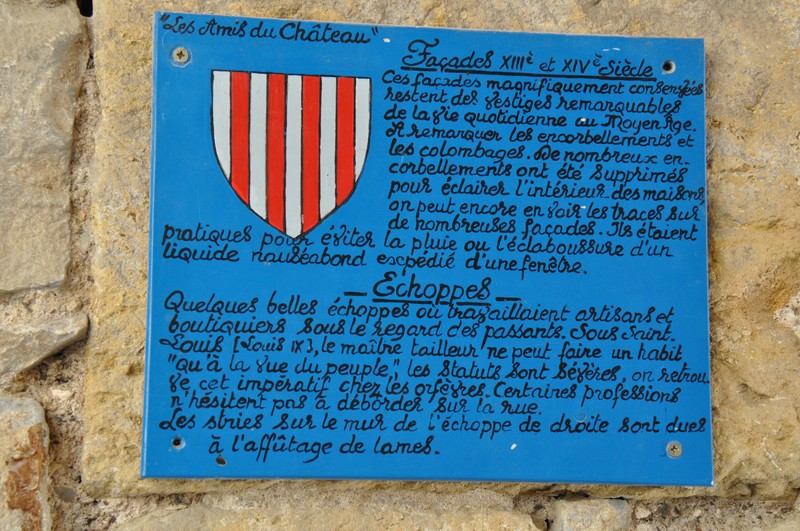 "Les Amis du Château"
Façades XIIIè et XIVè Siècle
Ces façades magnifiquement conservées
restent des vestiges remarquables
de la vie quotidienne au Moyen Age.
A remarquer les encorbellements et
les colombages. De nombreux en-
corbellements ont été supprimés
pour éclairer l'intérieur des maisons,
on peut encore en voir les traces sur
de nombreuses façades. Ils étaient
pratiques pour éviter la pluie ou l'éclaboussure d'un
liquide nauséabond expédié d'une fenêtre.
Echoppes
Quelques belles échoppes où travaillaient artisans et
boutiquiers sous le regard des passants. Sous Saint.
Louis [Louis IX], le maître tailleur ne peut faire un habit
"qu'à la vue du peuple", les statuts sont sévères, on retrou
ve cet impératif chez les orfèvres. Certaines professions
n'hésitent pas à déborder sur la rue.
Les stries sur le mur de l'échoppe de droite sont dues
à l'affûtage de lames.